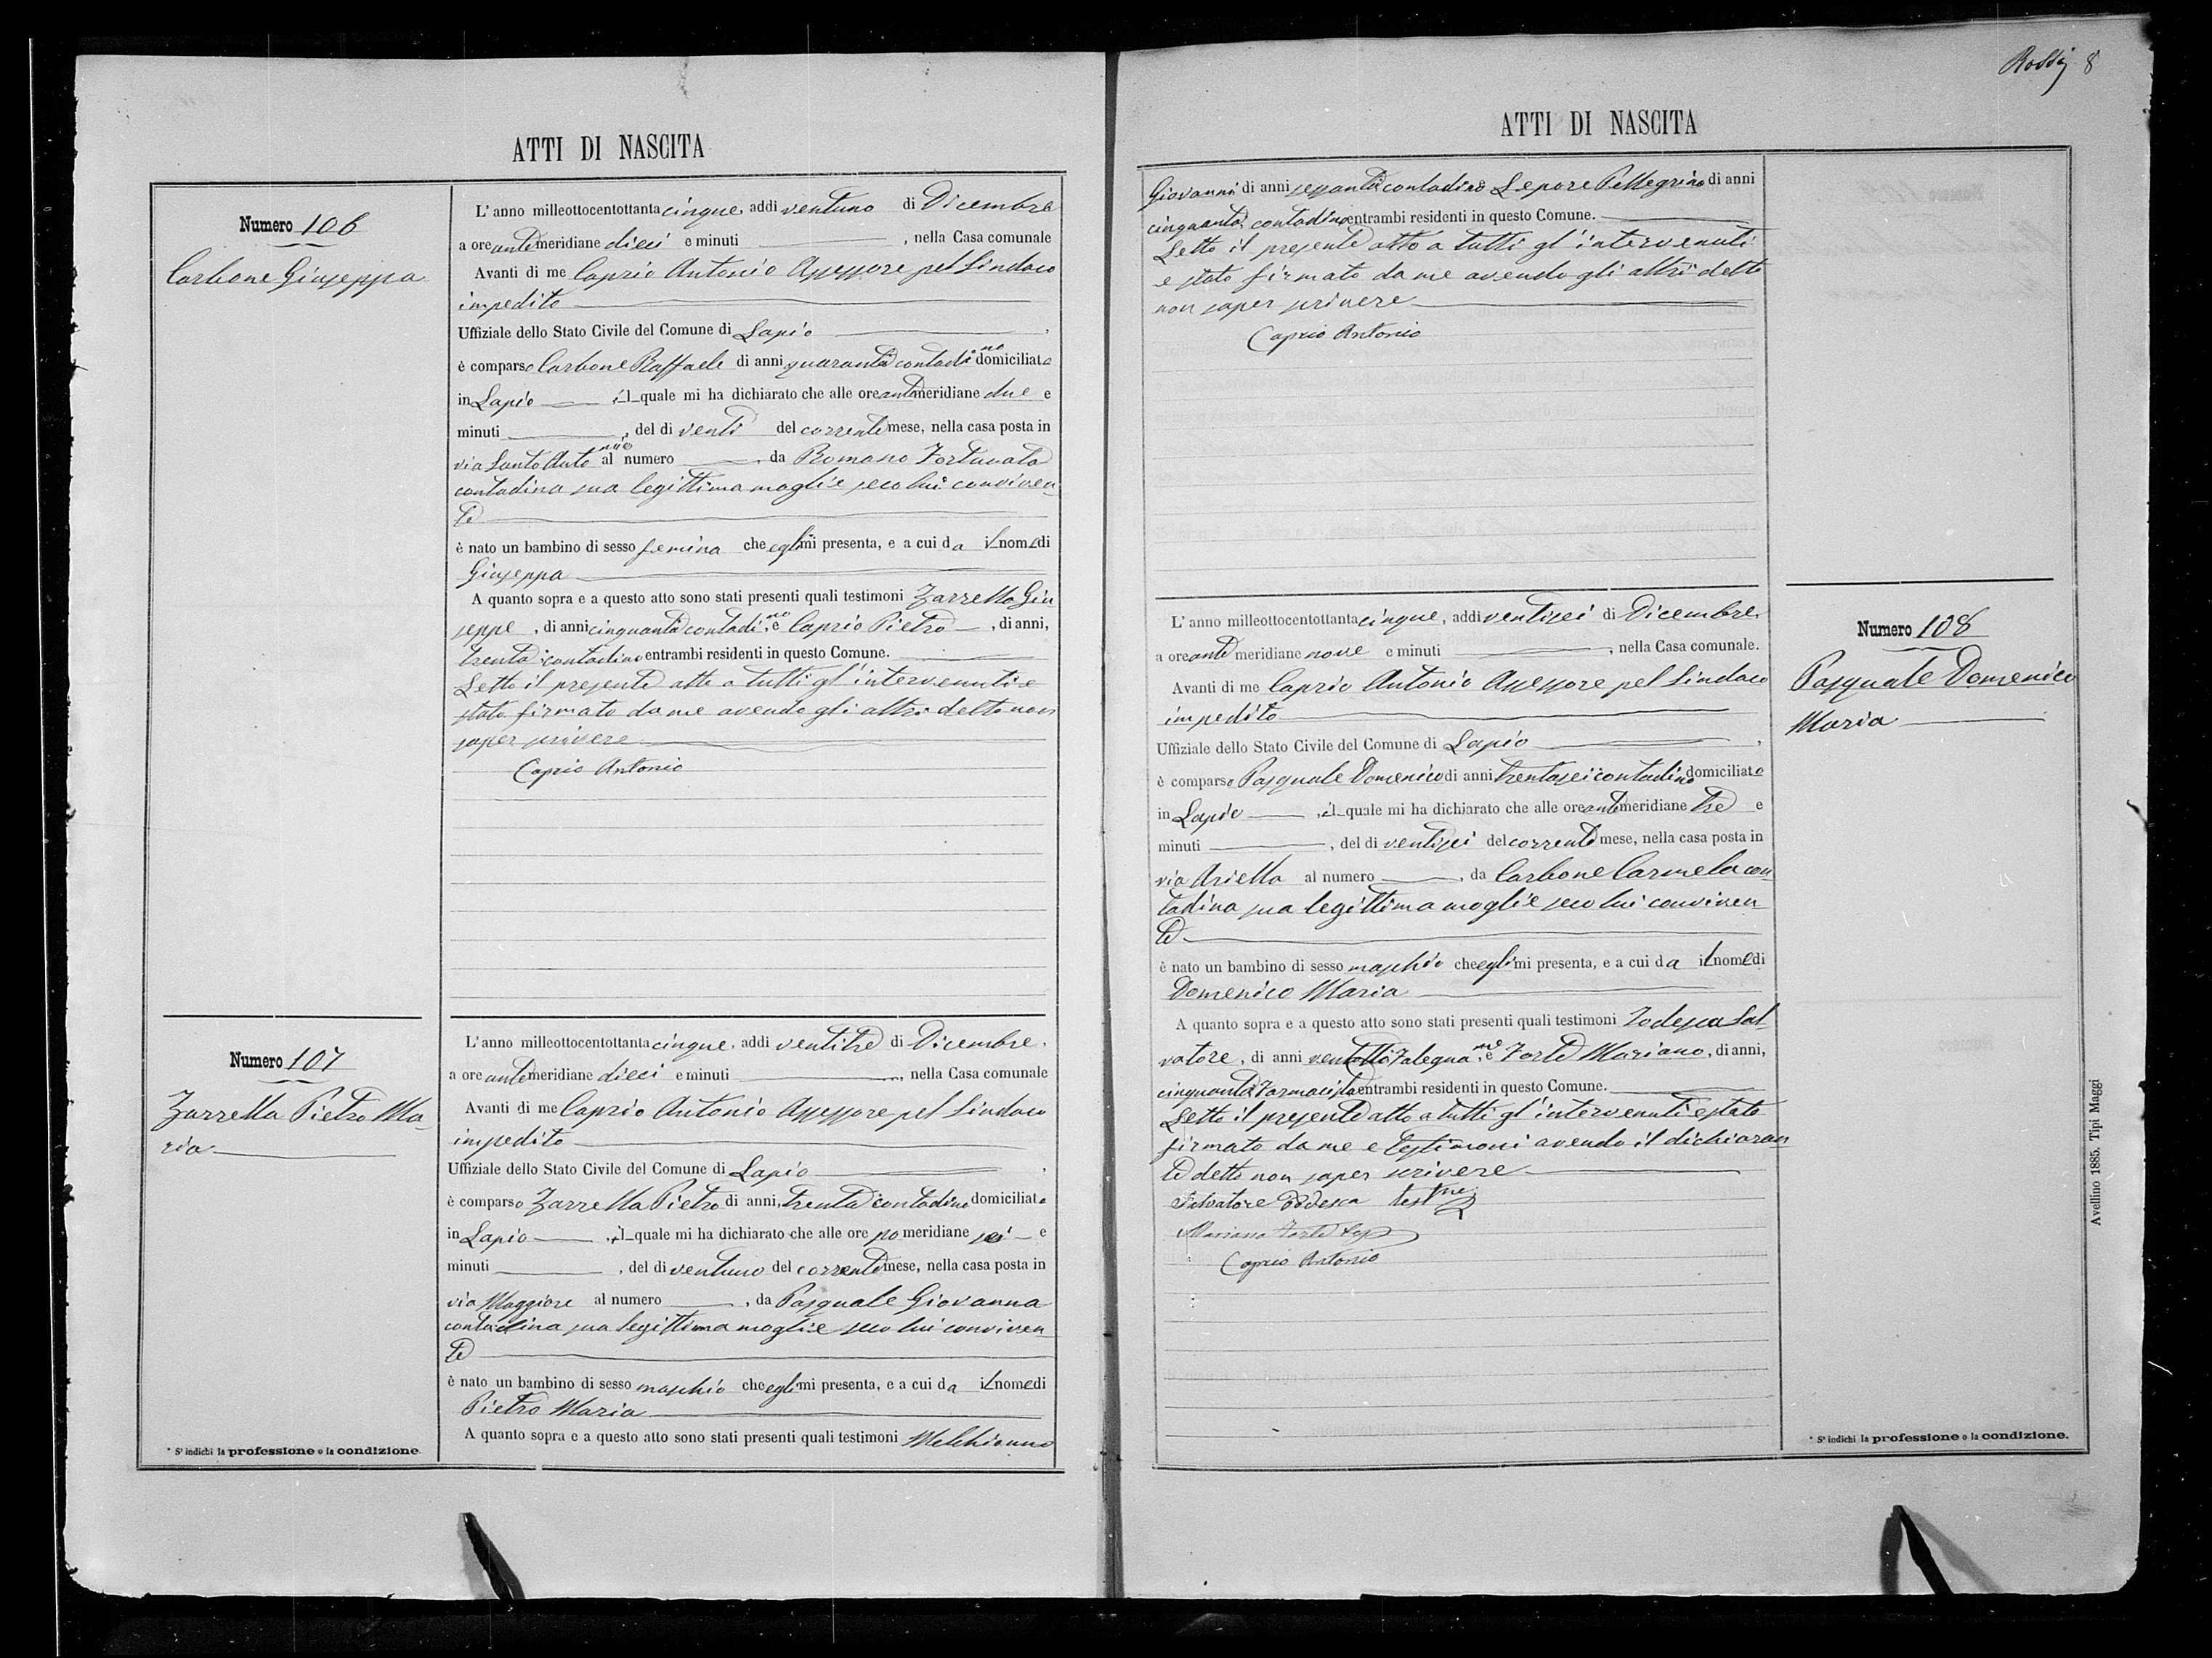 Rossi 8
ATTI DI NASCITA
Numero 106
Carbone Giuseppa
L'anno milleottocentottanta cinque, addì ventuno di Dicembre
a ore ante meridiane dieci e minuti , nella Casa comunale
Avanti di me Caprio Antonio Assessore pel Sindaco
impedito
Uffiziale dello Stato Civile del Comune di Lapio ,
è comparso Carbone Raffaele di anni quaranta contadino domiciliato
in Lapio , il quale mi ha dichiarato che alle ore antemeridiane due e
minuti , del dì venti del corrente mese, nella casa posta in
via Santo Antonio al numero , da Romano Fortunata
contadina sua legittima moglie seco lui conviven
te
è nato un bambino di sesso femina che egli mi presenta, e a cui da il nome di
Giuseppa
A quanto sopra e a questo atto sono stati presenti quali testimoni Zarrella Giu
seppe , di anni cinquanta contadino, e Caprio Pietro , di anni,
trenta contadino entrambi residenti in questo Comune.
Letto il presente atto a tutti gl'intervenuti e
stato firmato da me avendo gli altri detto non
saper scrivere
Caprio Antonio
Numero 107
Zarrella Pietro Ma
ria
L'anno milleottocentottanta cinque, addì ventitre di Dicembre,
a ore antemeridiane dieci e minuti , nella Casa comunale
Avanti di me Caprio Antonio Assessore pel Sindaco
impedito
Uffiziale dello Stato Civile del Comune di Lapio ,
è comparso Zarrella Pietro di anni, trenta contadino domiciliato
in Lapio , il quale mi ha dichiarato che alle ore po meridiane sei e
minuti , del dì ventuno del corrente mese, nella casa posta in
via Maggiore al numero , da Pasquale Giovanna
contadina sua legittima moglie seco lui conviven
te
è nato un bambino di sesso maschio che egli mi presenta, e a cui da il nome di
Pietro Maria
A quanto sopra e a questo atto sono stati presenti quali testimoni Melchionno
* S'indichi la professione o la condizione.
ATTI DI NASCITA
Giovanni di anni sessanta contadino Lepore Pellegrino di anni
cinquanta contadino entrambi residenti in questo Comune.
Letto il presente atto a tutti gl'intervenuti
e stato firmato da me avendo gli altri detto
non saper scrivere
Caprio Antonio
Numero 108
Pasquale Domenico
Maria
L'anno milleottocentottanta cinque, addì ventisei di Dicembre,
a ore ante meridiane nove e minuti , nella Casa comunale.
Avanti di me Caprio Antonio Assessore pel Sindaco
impedito
Uffiziale dello Stato Civile del Comune di Lapio ,
è comparso Pasquale Domenico di anni trentasei contadino domiciliato
in Lapio , il quale mi ha dichiarato che alle ore antemeridiane tre e
minuti , del dì ventisei del corrente mese, nella casa posta in
via Ariella al numero , da Carbone Carmela con
tadina sua legittima moglie seco lui conviven
te
è nato un bambino di sesso maschio che egli mi presenta, e a cui da il nome di
Domenico Maria
A quanto sopra e a questo atto sono stati presenti quali testimoni Todesca Sal
vatore, di anni ventotto Falegname, e Forte Mariano, di anni,
cinquanta Farmacista entrambi residenti in questo Comune.
Letto il presente atto a tutti gl'intervenuti e stato
firmato da me e testimoni avendo il dichiaran
te detto non saper scrivere
Salvatore Todesca testne
Mariano Forte
Caprio Antonio
* S'indichi la professione o la condizione.
Avellino 1885. Tipi Maggi